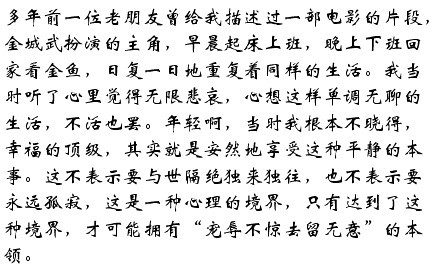 多年前一位老朋友曾给我描述过一部电影的片段，
金城武扮演的主角，早晨起床上班，晚上下班回
家看金鱼，日复一日地重复着同样的生活。我当
时听了心里觉得无限悲哀，心想这样单调无聊的
生活，不活也罢。年轻啊，当时我根本不晓得，
幸福的顶级，其实就是安然地享受这种平静的本
事。这不表示要与世隔绝独来独往，也不表示要
永远孤寂，这是一种心理的境界，只有达到了这
种境界，才可能拥有“宠辱不惊去留无意”的本
领。